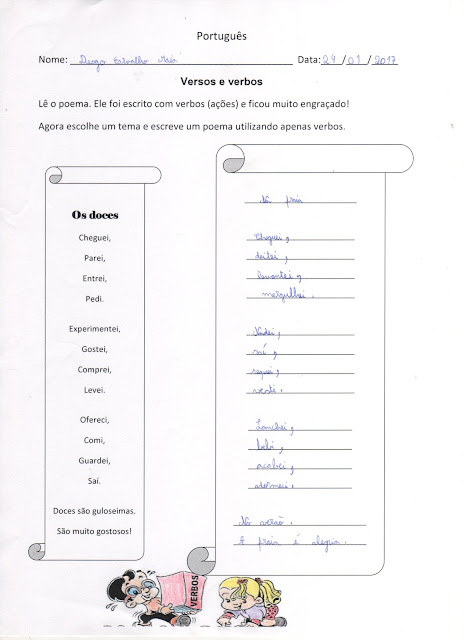 Português
Nome: Diogo Carvalho Maia Data: 24/01/2017
Versos e verbos
Lê o poema. Ele foi escrito com verbos (ações) e ficou muito engraçado!
Agora escolhe um tema e escreve um poema utilizando apenas verbos.
Os doces
Cheguei,
Parei,
Entrei,
Pedi.
Experimentei,
Gostei,
Comprei,
Levei.
Ofereci,
Comi,
Guardei,
Saí.
Doces são guloseimas.
São muito gostosos!
Na praia
Cheguei,
deitei,
levantei,
mergulhei.
Nadei,
saí,
sequei,
vesti.
Lanchei,
bebi,
acabei,
adormeci.
No verão.
A praia é alegria.
VERBOS